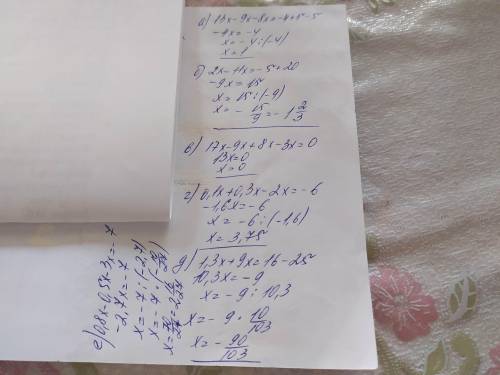 а) 13x-9x-8x=-4+5-5
-4x=-4
x=-4:(-4)
x=1
б) 2x-11x=-5+20
-9x=15
x=15:(-9)
x=-15/9=-1 2/3
в) 17x-9x+8x-3x=0
13x=0
x=0
г) 0,1x+0,3x-2x=-6
-1,6x=-6
x=-6:(-1,6)
x=3,75
д) 1,3x+9x=16-25
10,3x=-9
x=-9:10,3
x=-9·10/103
x=-90/103
е) 0,8x-0,5x-3x=-7
-2,7x=-7
x=-7:(-2,7)
x=-7·
x=70/27=2 16/27